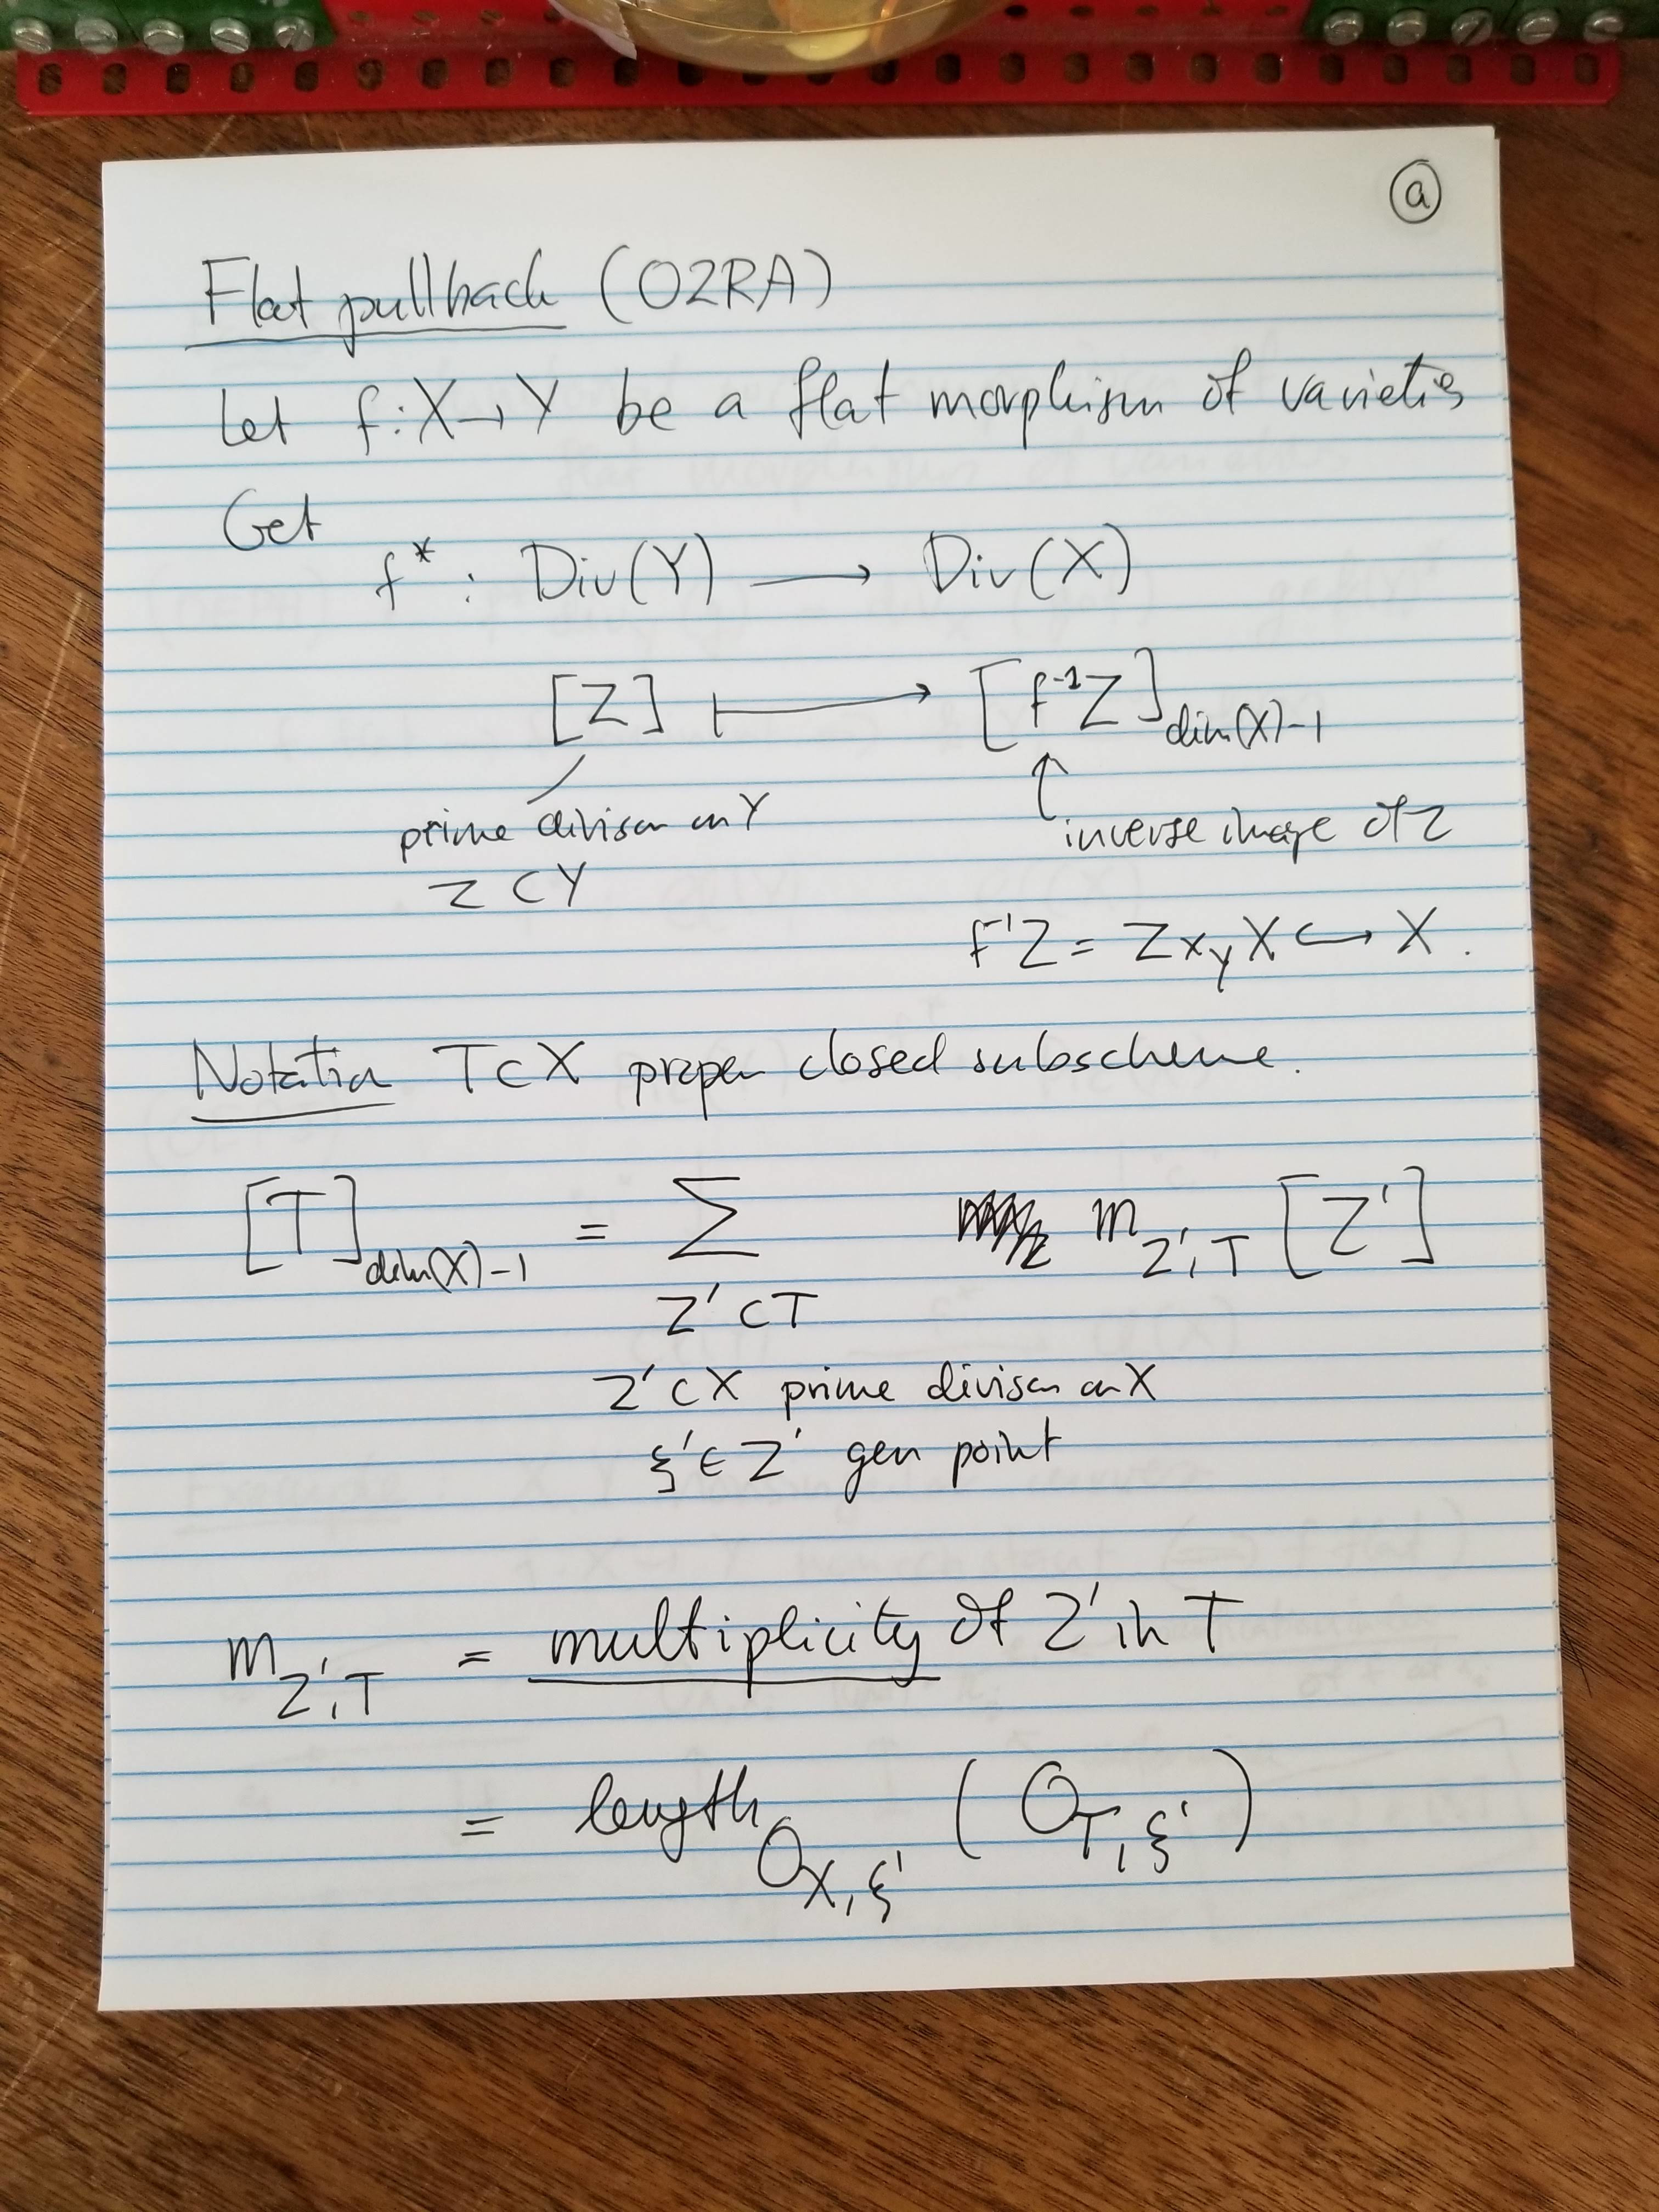 ⓐ
Flat pullback (02RA)
Let f: X → Y be a flat morphism of varieties
Get
f* : Div(Y) ⟶ Div(X)
[Z] ⟼ [f⁻¹Z]_{dim(X)-1}
prime divisor on Y
inverse image of Z
Z ⊂ Y
f⁻¹Z = Z ×_Y X ↪ X.
Notation T ⊂ X proper closed subscheme.
[T]_{dim(X)-1} = Σ m_{Z',T} [Z']
Z' ⊂ T
Z' ⊂ X prime divisor on X
ξ' ∈ Z' gen point
m_{Z',T} = multiplicity of Z' in T
= length_{O_{X,ξ'}} (O_{T,ξ'})